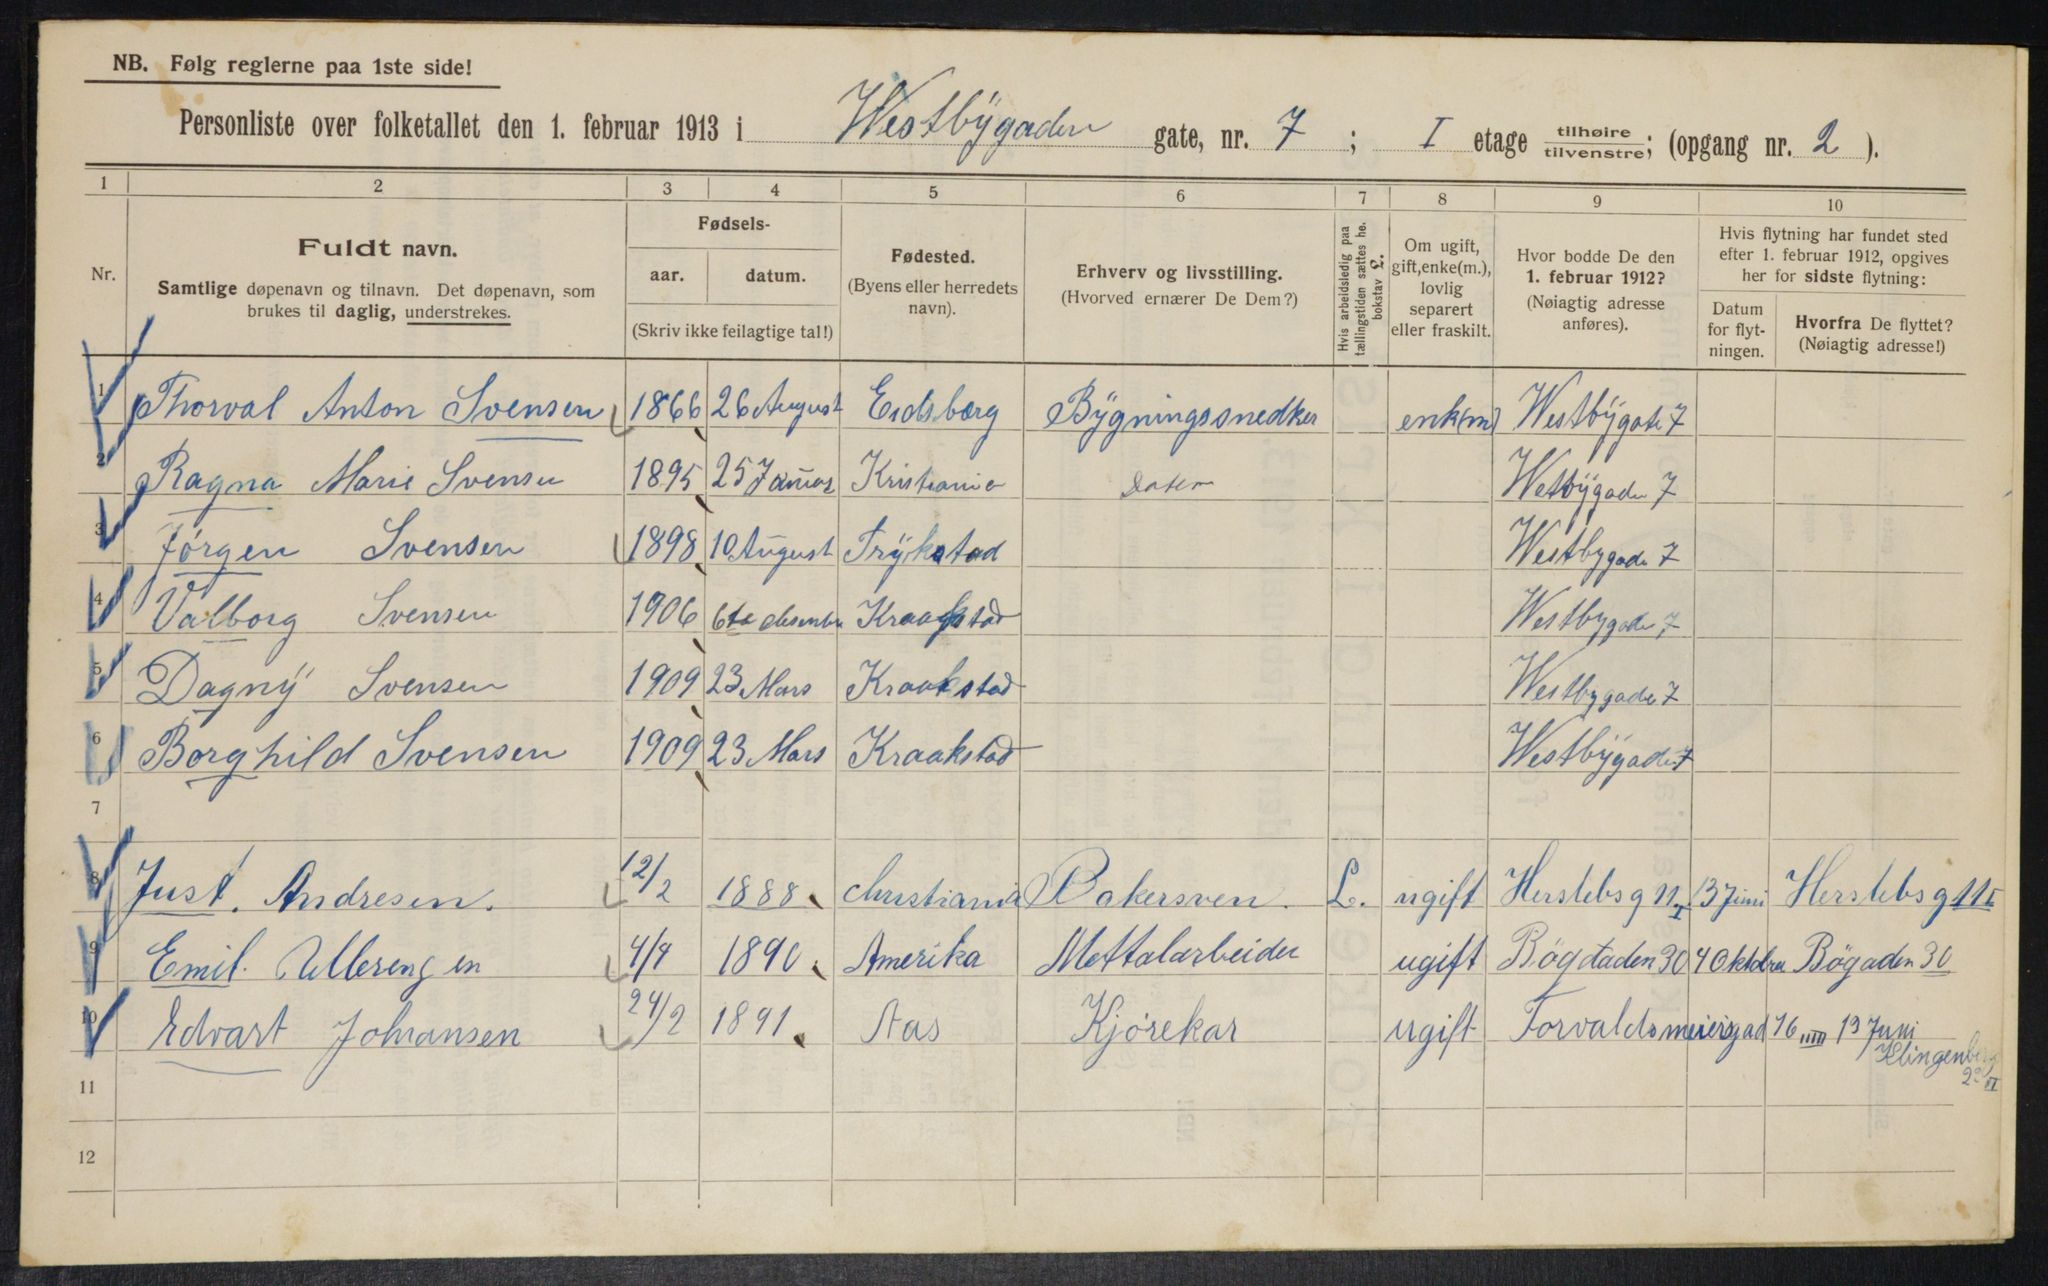 NB. Følg reglerne paa 1ste side!
Personliste over folketallet den 1. februar 1913 i Westbÿgaden gate, nr. 7 ; I etage tilhøire tilvenstre; (opgang nr. 2 ).
1 2 3 4 5 6 7 8 9 10
Nr.
Fuldt navn.
Samtlige døpenavn og tilnavn. Det døpenavn, som
brukes til daglig, understrekes.
Fødsels-
aar. datum.
(Skriv ikke feilagtige tal!)
Fødested.
(Byens eller herredets
navn).
Erhverv og livsstilling.
(Hvorved ernærer De Dem?)
Hvis arbeidsledig paa
tællingstiden sættes he.
bokstav L.
Om ugift,
gift,enke(m.),
lovlig
separert
eller fraskilt.
Hvor bodde De den
1. februar 1912?
(Nøiagtig adresse
anføres).
Hvis flytning har fundet sted
efter 1. februar 1912, opgives
her for sidste flytning:
Datum
for flyt-
ningen.
Hvorfra De flyttet?
(Nøiagtig adresse!)
1 Thorval Anton Svensen 1866 26 August Eidsberg Bÿgningssnedker enk(m) Westbÿgate 7
2 Ragna Marie Svensen 1895 25 Januar Kristiania Dater Wetbÿgaden 7
3 Jørgen Svensen 1898 10 August Trÿkstad Westbygade 7
4 Valborg Svensen 1906 6te desember Kraakstad Westbygade 7
5 Dagnÿ Svensen 1909 23 Mars Kraakstad Westbygade 7
6 Borghild Svensen 1909 23 Mars Kraakstad Westbÿgade 7
7
8 Just. Andresen. 12/2 1888 Christiania Bakersven. L. ugift Herslebsg 11 I 13 Juni Herslebsg 11 I
9 Emil. Ullerengen 4/4 1890 Amerika Mettalarbeider ugift Bögdaden 30 4 Oktober Bögaden 30
10 Edvart Johansen 24/2 1891 Aas Kjørekar ugift Torvaldsmeiersgad 76 IIII 13 Juni
Klingenberg
2 II
11
12